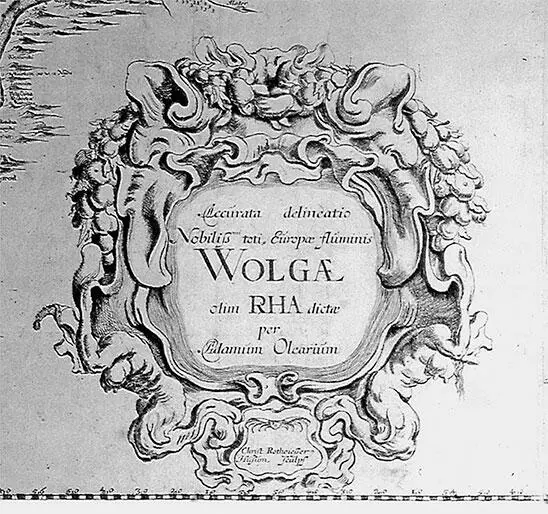 Accurata delineatio
Nobiliss toti, Europæ fluminis
WOLGÆ
olim RHA dictæ
per
Adamum Olearium
Christ Rothgiesser
Husum Sculps